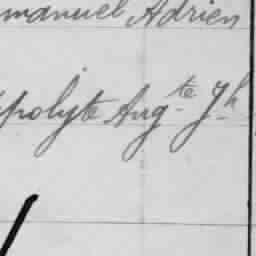 manuel Adrien
polyte Aug te Jh